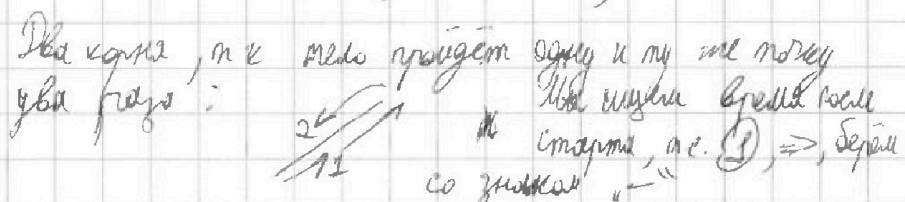 Два корня, т к тело пройдёт одну и ту же точку
два раза :
Мы ищем время после
2
старта, т.е. ①, =>, берём
1
со знаком „—“